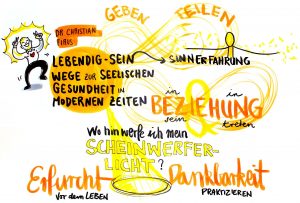 GEBEN TEILEN
DR CHRISTIAN
FIRUS
LEBENDIG-SEIN
WEGE ZUR SEELISCHEN
GESUNDHEIT IN
MODERNEN ZEITEN
SINNERFAHRUNG
in in
BEZIEHUNG
sein & treten
Wo hin werfe ich mein
SCHEINWERFER-
LICHT?
Erfurcht Dankbarkeit
Vor dem LEBEN PRAKTIZIEREN